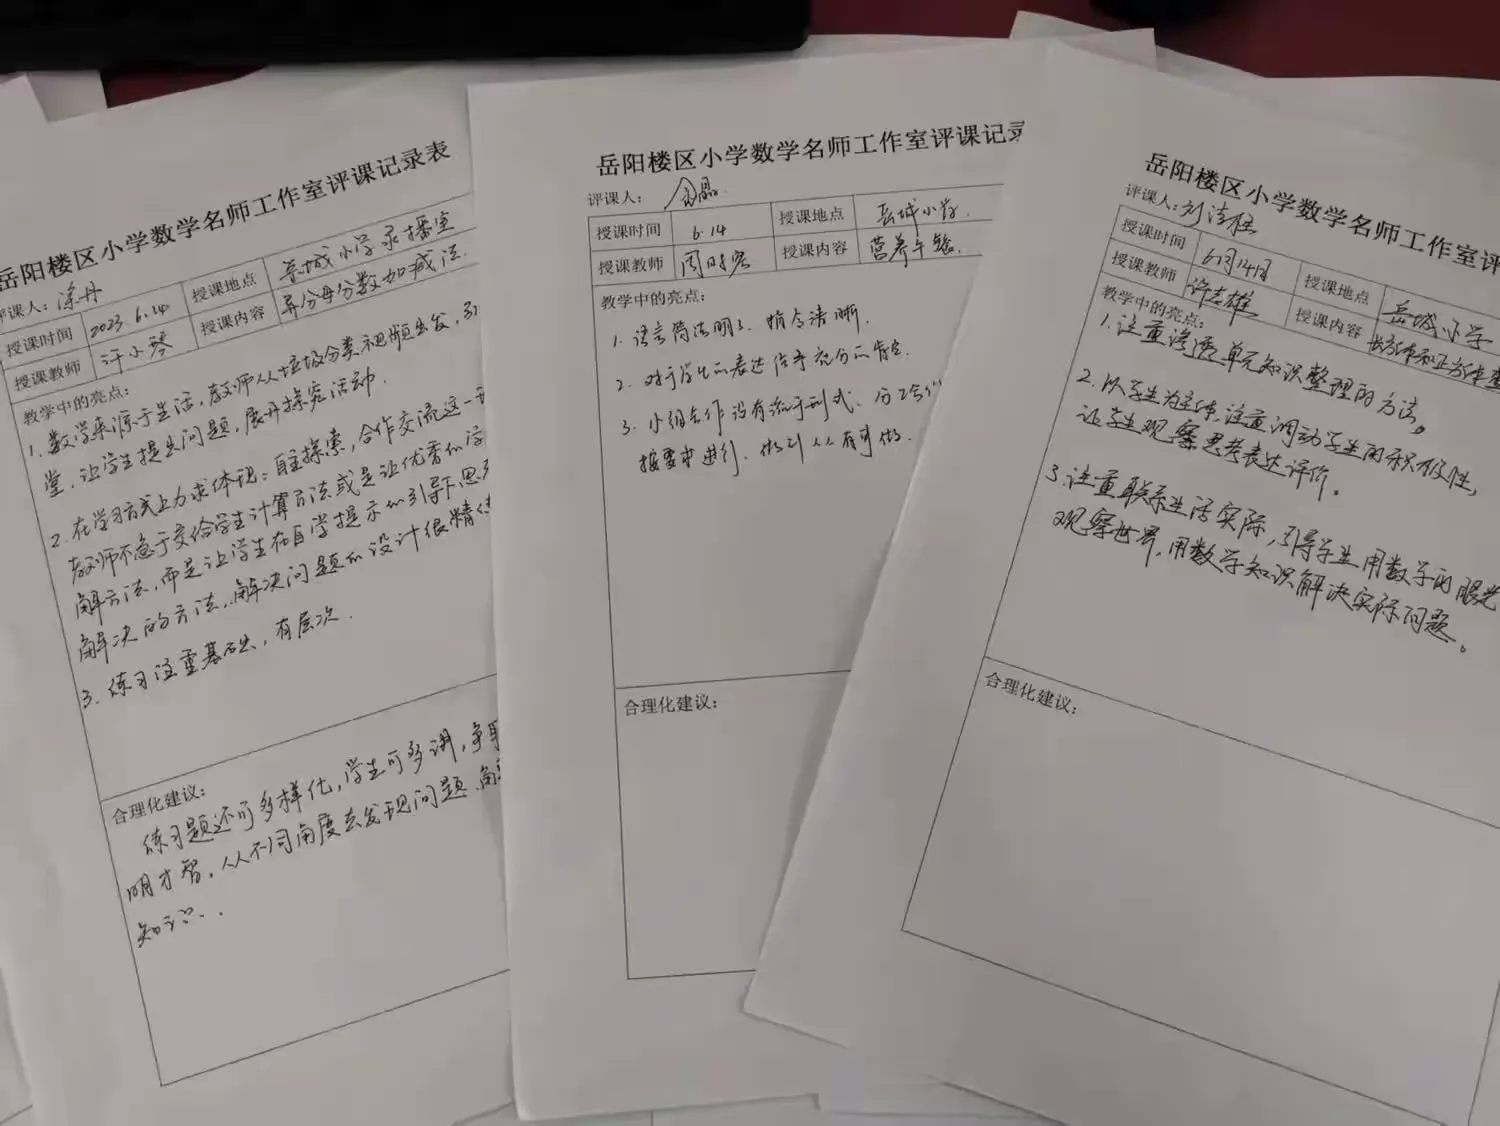 岳阳楼区小学数学名师工作室评课记录表
评课人：涂丹
授课时间 2023.6.14 授课地点 岳城小学录播室
授课教师 许小琴 授课内容 异分母分数加减法.
教学中的亮点：
1. 数学来源于生活，教师从垃圾分类视频出发，引
堂，让学生提出问题，展开探究活动.
2. 在学习方式上力求体现：自主探索，合作交流这一
教师不急于交给学生计算方法或是让优秀的学
解方法，而是让学生在自学提示的引导下思
解决的方法，解决问题的设计很精
3. 练习注重基础，有层次.
合理化建议：
练习题还可多样化，学生可多讲，争取
明才智，从不同角度去发现问题.
知识...
岳阳楼区小学数学名师工作室评课记录
评课人：
授课时间 6.14 授课地点 岳城小学.
授课教师 周时宏 授课内容 营养午餐.
教学中的亮点：
1. 语言简洁明了、指令清晰.
2. 对于学生的表达给予充分的肯定.
3. 小组合作没有流于形式、分工合
按要求进行、做到人人有事做.
合理化建议：
岳阳楼区小学数学名师工作室评
评课人：刘洁程
授课时间 6月14日 授课地点 岳城小学
授课教师 许志雄 授课内容 长方体和正方体整
教学中的亮点：
1. 注重渗透单元知识整理的方法。
2. 以学生为主体，注重调动学生的积极性，
让学生观察思考表达评价。
3. 注重联系生活实际，引导学生用数学的眼光
观察世界，用数学知识解决实际问题。
合理化建议：